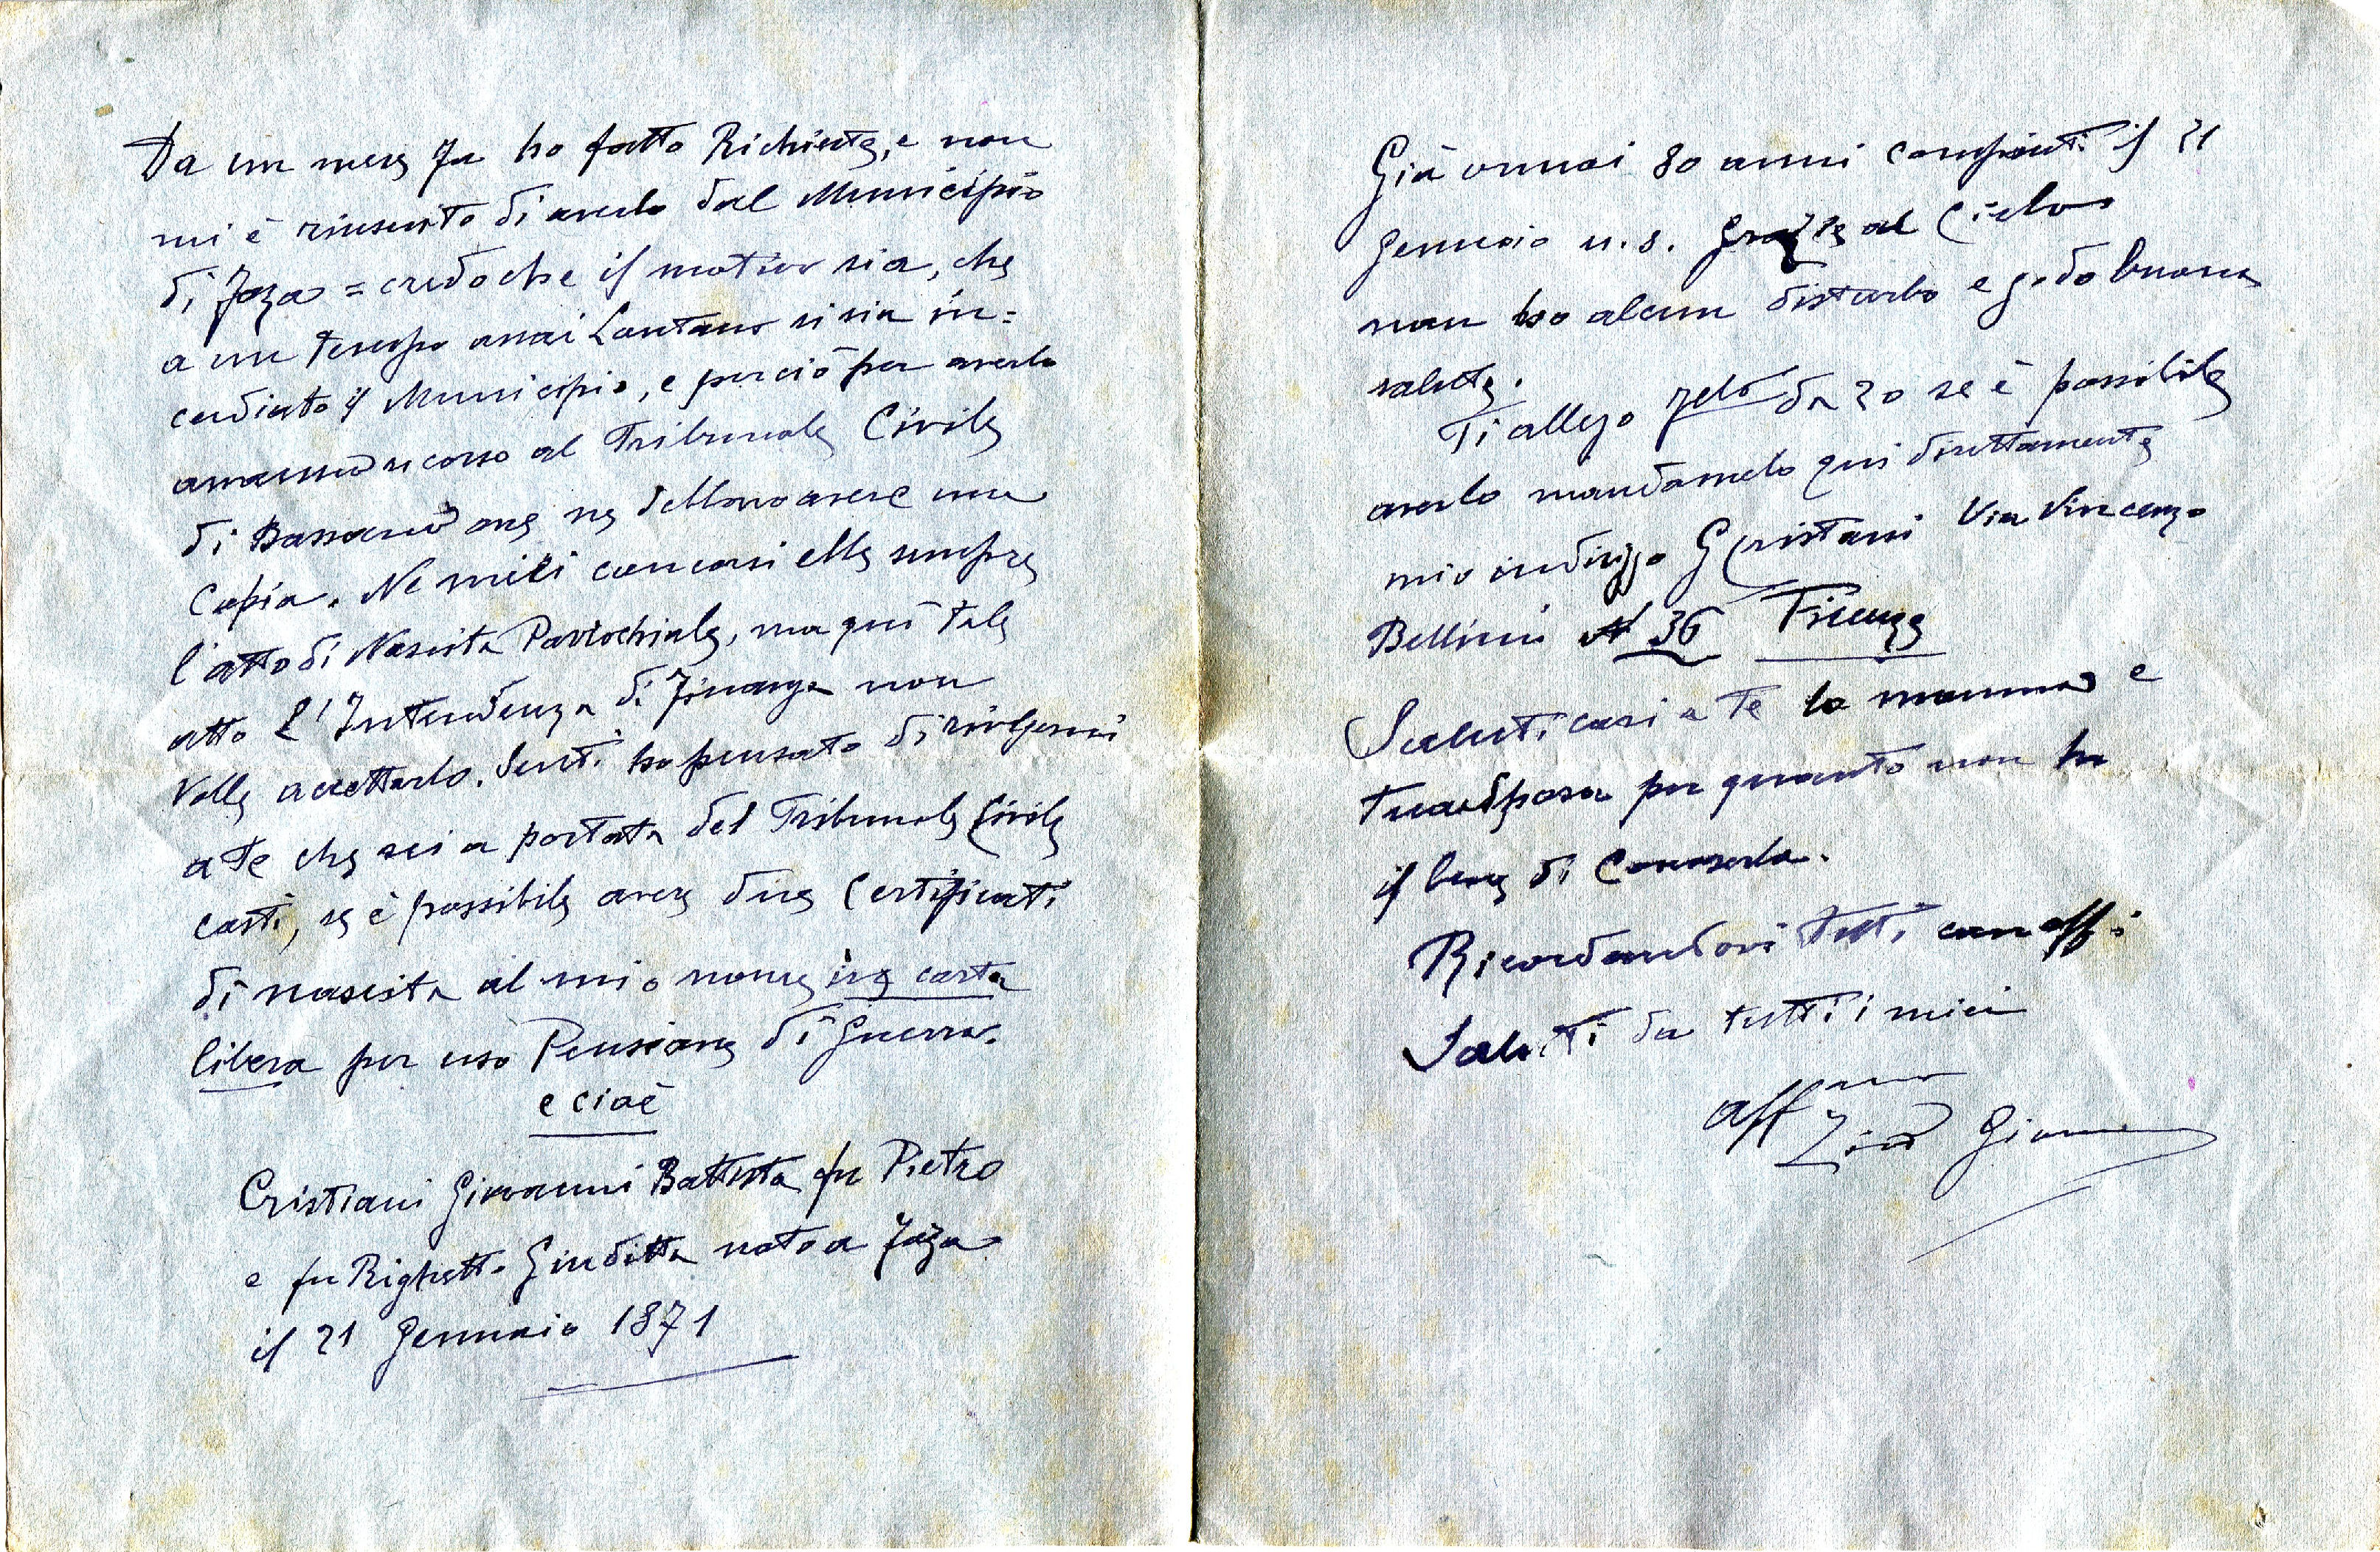 Da un mese fa ho fatto Richiesta, e non
mi è riuscito di averlo dal Municipio
di Foza = credo che il motivo sia, che
a un tempo assai Lontano si sia in=
cendiato il Municipio, e perciò per averlo
ricorso al Tribunale Civile
di Bassano ove ne debbono avere una
Copia. Ne miei concorsi ebbe sempre
l'atto di Nascita Parrochiale, ma qui tale
atto L'Intendenza di Finanza non
Volle accettarlo. Senti ho pensato di rivolgermi
a te che sei a portata del Tribunale Civile
costì, se è possibile avere due Certificati
di nascita al mio nome in carta
libera per uso Pensione di guerra.
e cioè
Cristiani Giovanni Battista fu Pietro
e fu Righetto Giuditta nato a Foza
il 21 Gennaio 1871
Già ormai 80 anni compiuti il 21
Gennaio u.s. grazie al Cielo
non ho alcun disturbo e godo buona
salute.
Ti allego da 20 se è possibile
averlo mandamelo qui direttamente
mio indirizzo G Cristiani Via Vincenzo
Bellini N 36 Firenze
Saluti cari a Te la mamma e
tua Sposa per quanto non ho
il bene di Conoserla.
Ricordandovi tutti con aff.
Saluti da tutti i miei
aff mo Zio Giovanni